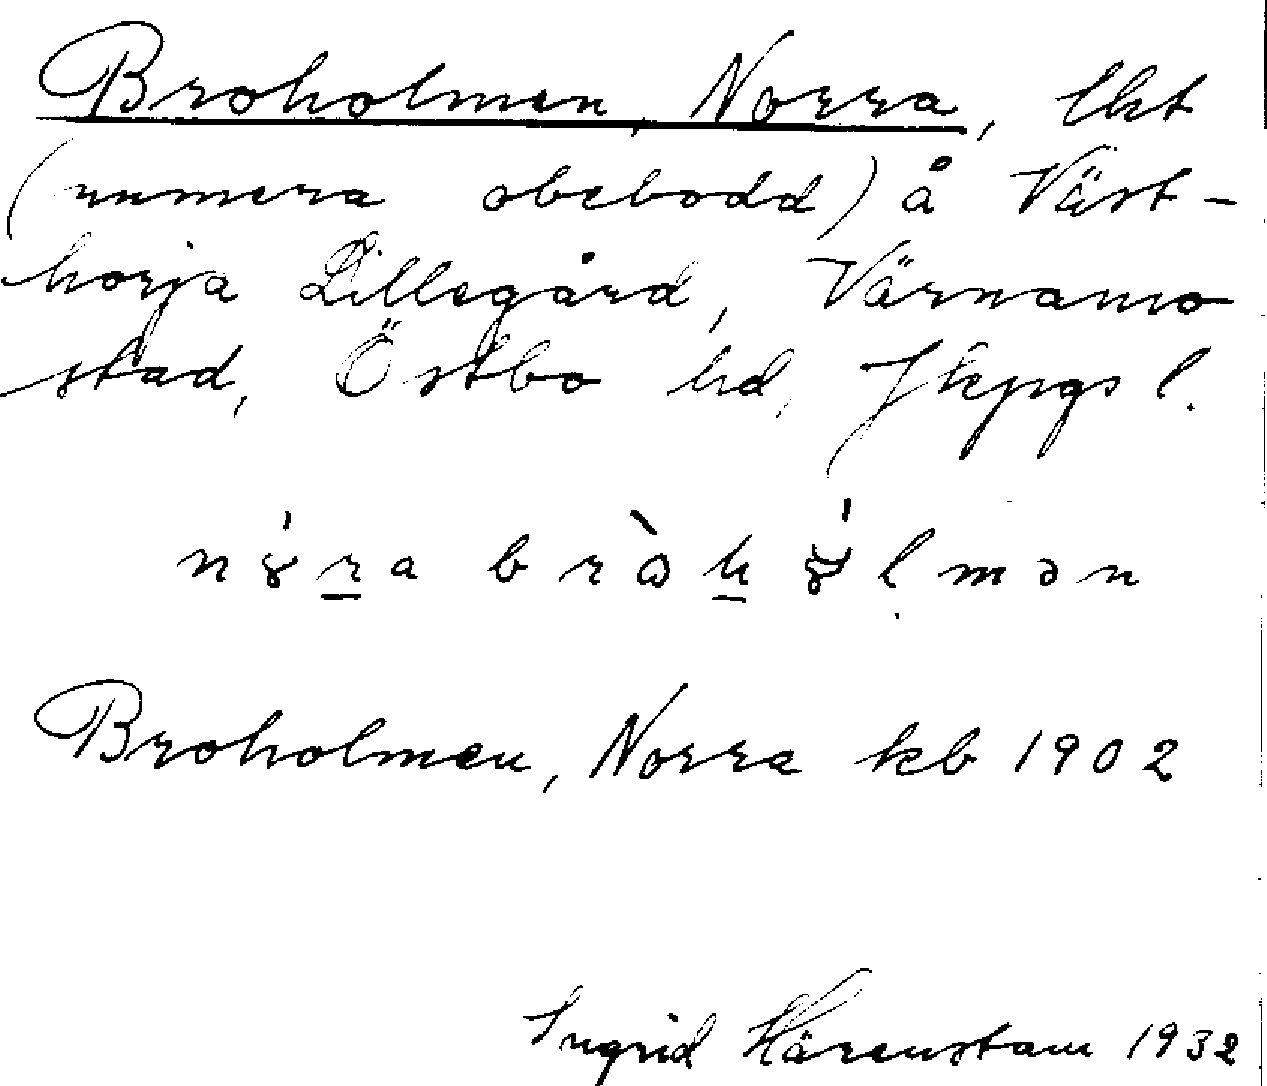 Broholmen, Norra, lht
(numera obebodd) å Väst-
horja Lillegård, Värnamo
stad, Östbo hd, Jkpgs l.
Broholmen, Norra kb 1902
Ingrid Härenstam 1932